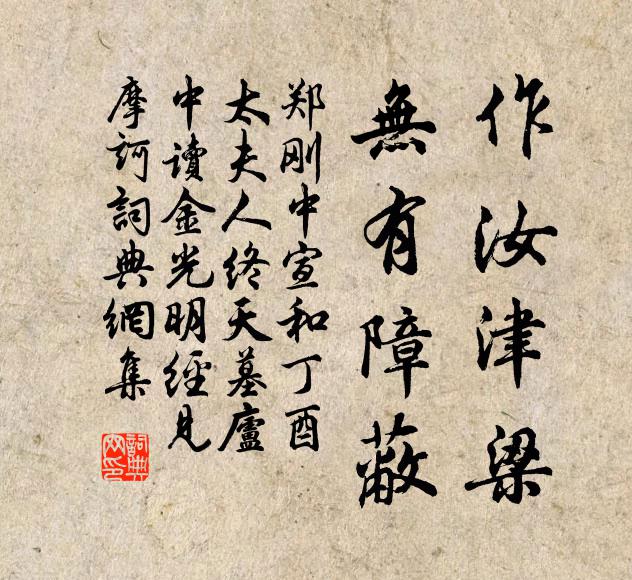 作汝津梁
無有障蔽
郑刚中宣和丁酉
太夫人终天墓廬
中讀金光明經見
摩訶詞典網集
詞典
网印